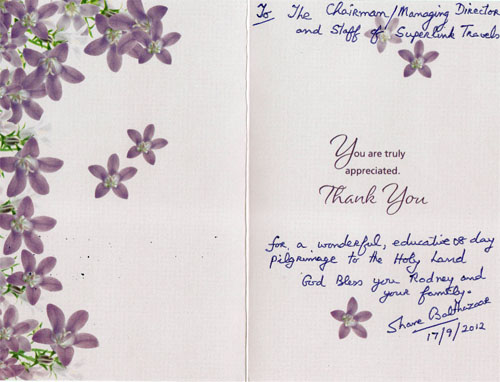 To The Chairman/Managing Director
and Staff of Superlink Travels
You are truly
appreciated.
Thank You
for a wonderful, educative 8 day
pilgrimage to the Holy Land
God Bless you Rodney and
your family.
Balthazaar
17/9/2012